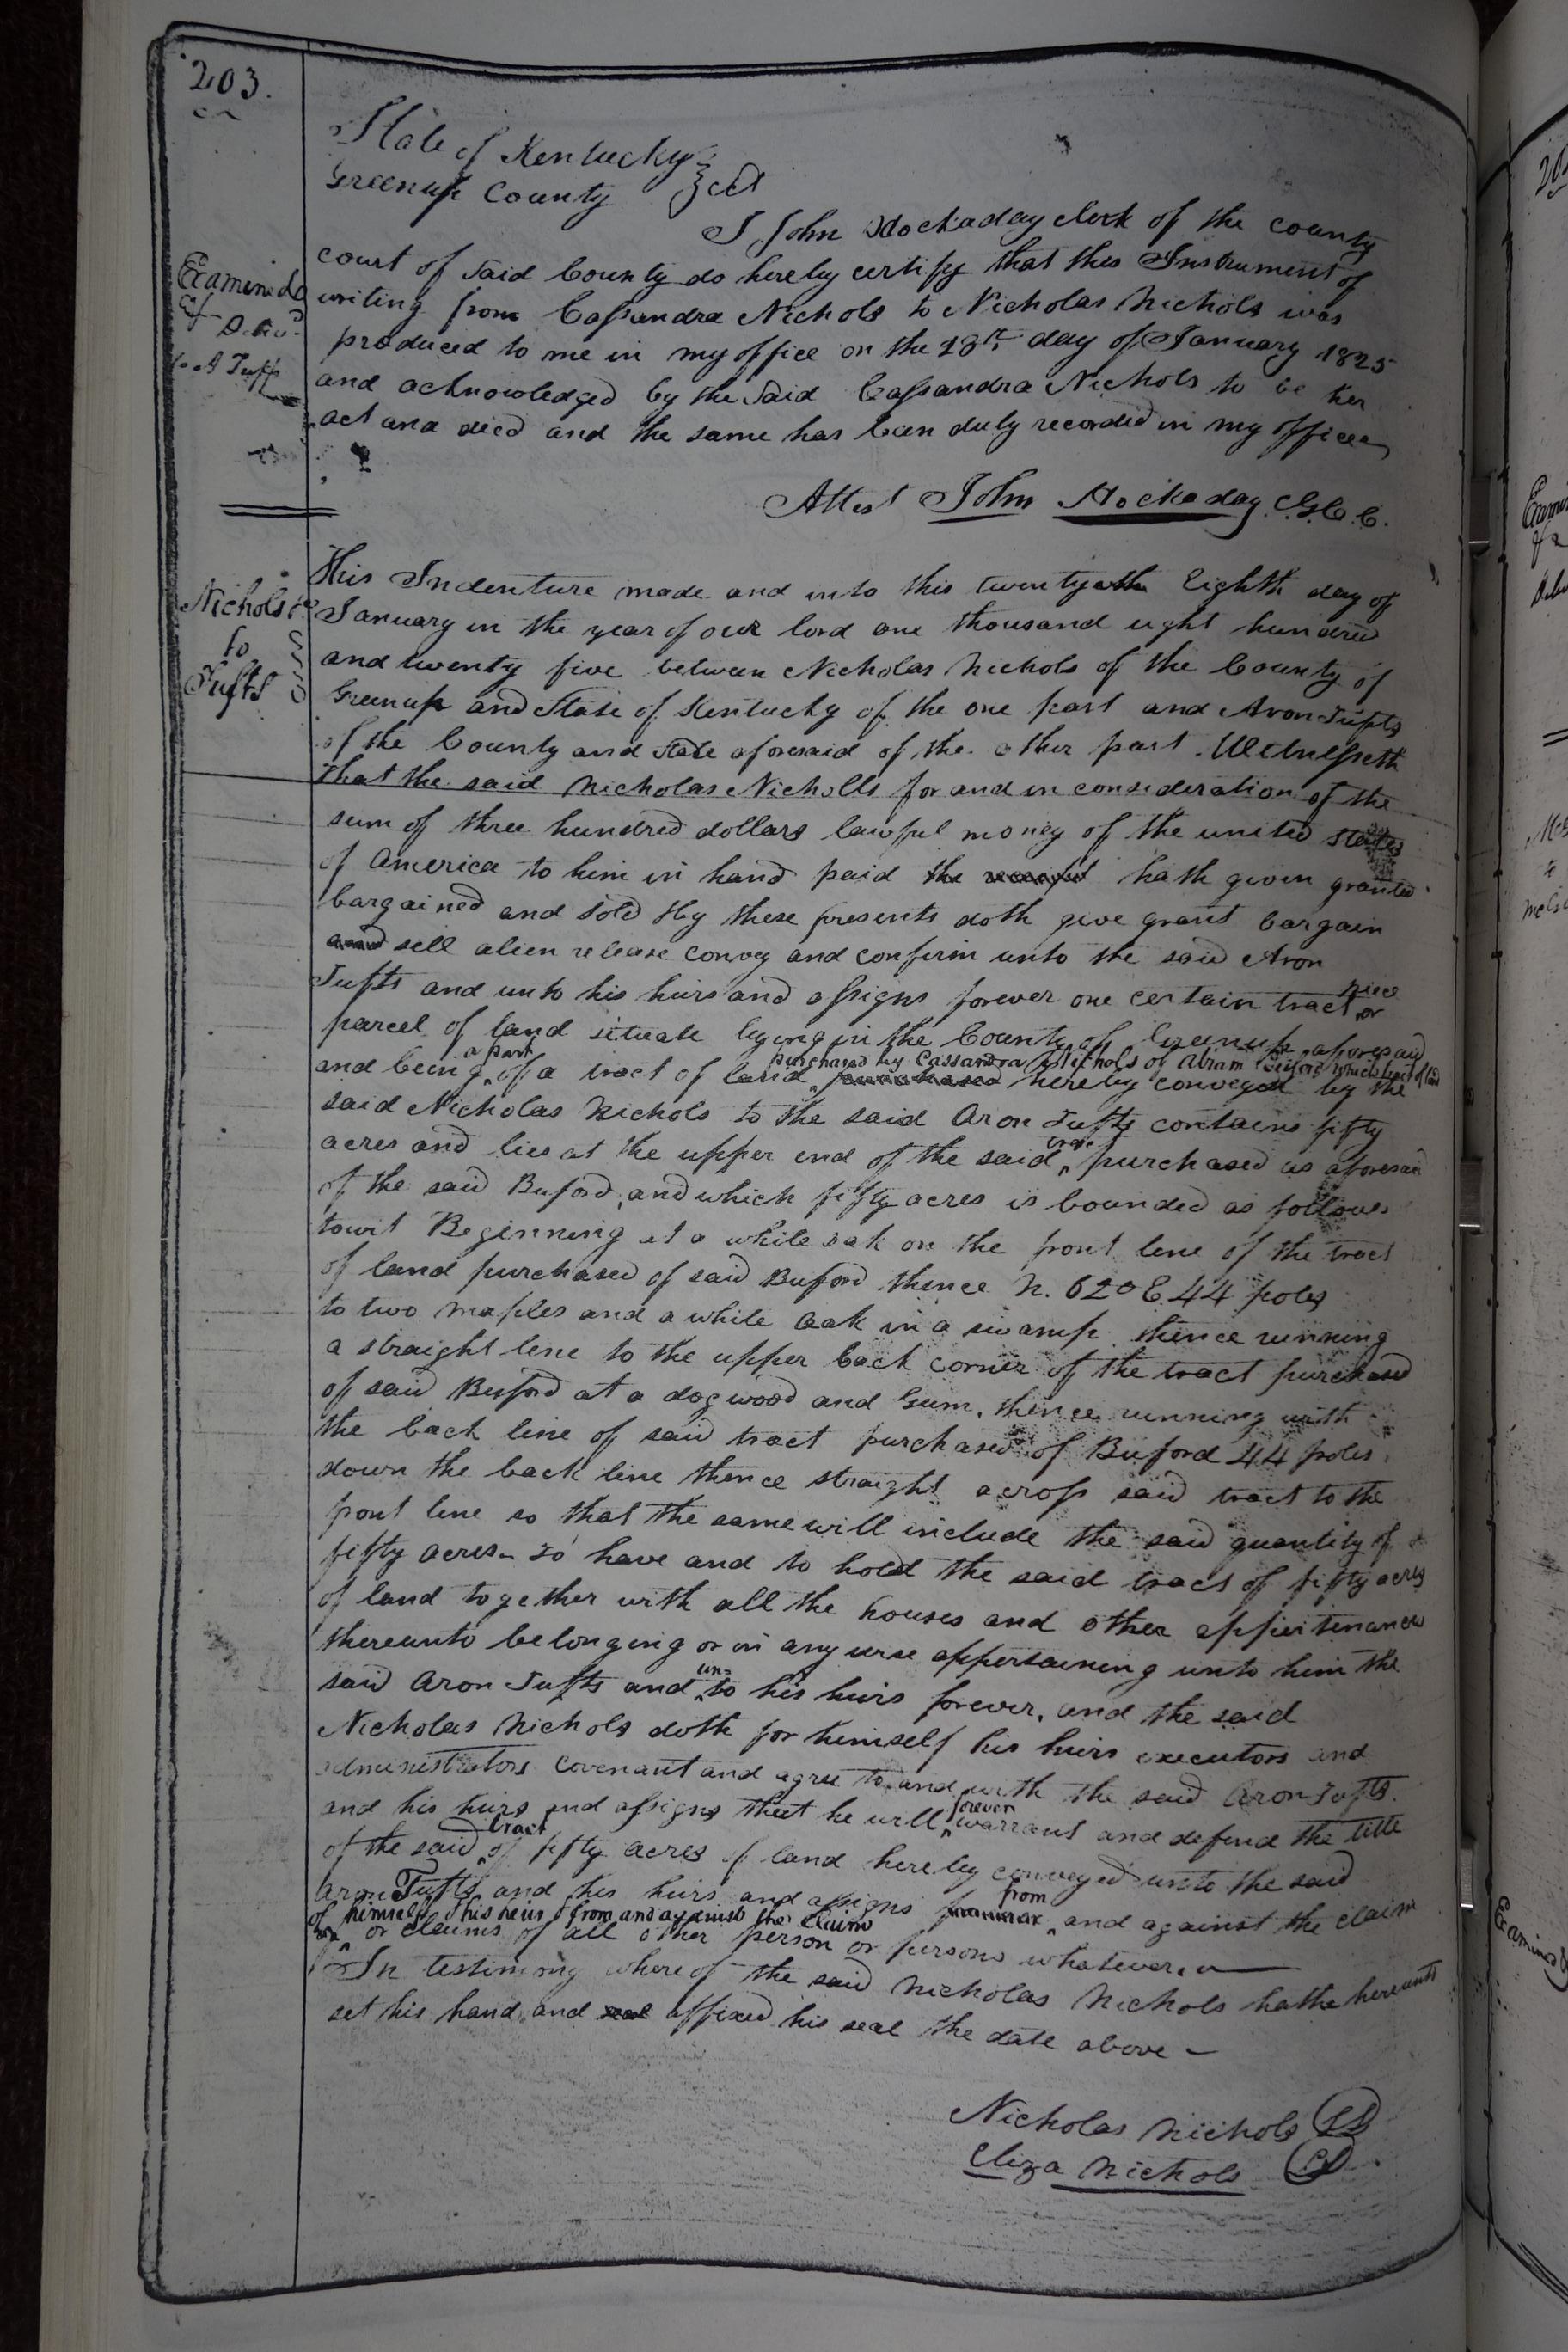 203.
State of Kentucky
Greenup County } Sct
I John Hockaday clerk of the county
court of said County do hereby certify that this Instrument of
writing from Cassandra Nichols to Nicholas Nichols was
produced to me in my office on the 28th day of January 1825
and acknowledged by the said Cassandra Nichols to be her
act and deed and the same has been duly recorded in my office
Attest John Hockaday C.G.C.C.
Examined
Nichols
to
Tufts
This Indenture made and into this twenty Eighth day of
January in the year of our lord one thousand eight hundred
and twenty five between Nicholas Nichols of the County of
Greenup and State of Kentucky of the one part and Aron Tufts
of the County and State aforesaid of the other part. Witnesseth
that the said Nicholas Nicholls for and in consideration of the
sum of three hundred dollars lawful money of the united states
of America to him in hand paid the receipt hath given granted
bargained and sold & by these presents doth give grant bargain
and sell alien release convey and confirm unto the said Aron
Tufts and unto his heirs and assigns forever one certain tract piece or
parcel of land situate lying in the County of Greenup aforesaid
and being a part of a tract of land purchased by Cassandra Nichols of Abram Buford which tract of land purchased hereby conveyed by the
said Nicholas Nichols to the said Aron Tufts contains fifty
acres and lies at the upper end of the said tract purchased as aforesaid
of the said Buford, and which fifty acres is bounded as follows
towit Beginning at a white oak on the front line of the tract
of land purchased of said Buford thence N. 62° E 44 poles
to two maples and a white oak in a swamp thence running
a straight line to the upper back corner of the tract purchased
of said Buford at a dogwood and Gum, thence running with
the back line of said tract purchased of Buford 44 poles
down the back line thence straight across said tract to the
front line so that the same will include the said quantity of
fifty acres - To have and to hold the said tract of fifty acres
of land together with all the houses and other appertenances
thereunto belonging or in any wise appertaining unto him the
said Aron Tufts and un= to his heirs forever, and the said
Nicholas Nichols doth for himself his heirs executors and
administrators covenant and agree to and with the said Aron Tufts
and his heirs and assigns that he will forever warrant and defend the title
of the said tract of fifty acres of land hereby conveyed unto the said
Aron Tufts and his heirs and assigns from and against the claim
of himself & his heirs & from and against the claim
or claims of all other person or persons whatever.
In testimony whereof the said Nicholas Nichols hathe hereunto
set his hand, and seal affixed his seal the date above -
Nicholas Nichols LS
Eliza Nichols LS